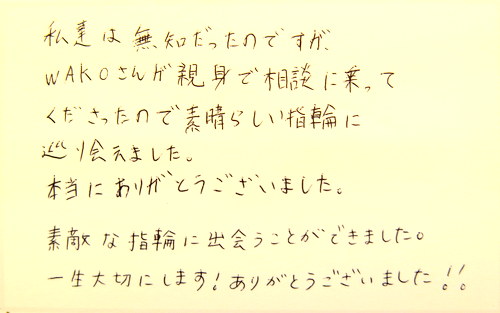 私達は無知だったのですが、
WAKOさんが親身で相談に乗って
くださったので素晴らしい指輪に
巡り会えました。
本当にありがとうございました。
素敵な指輪に出会うことができました。
一生大切にします!ありがとうございました!!